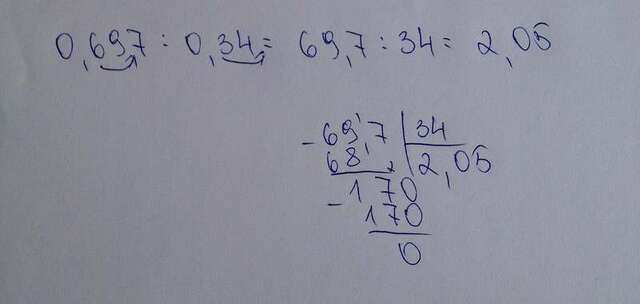 0,697 : 0,34 = 69,7 : 34 = 2,05
- 69,7 | 34
68, | 2,05
170
- 170
0